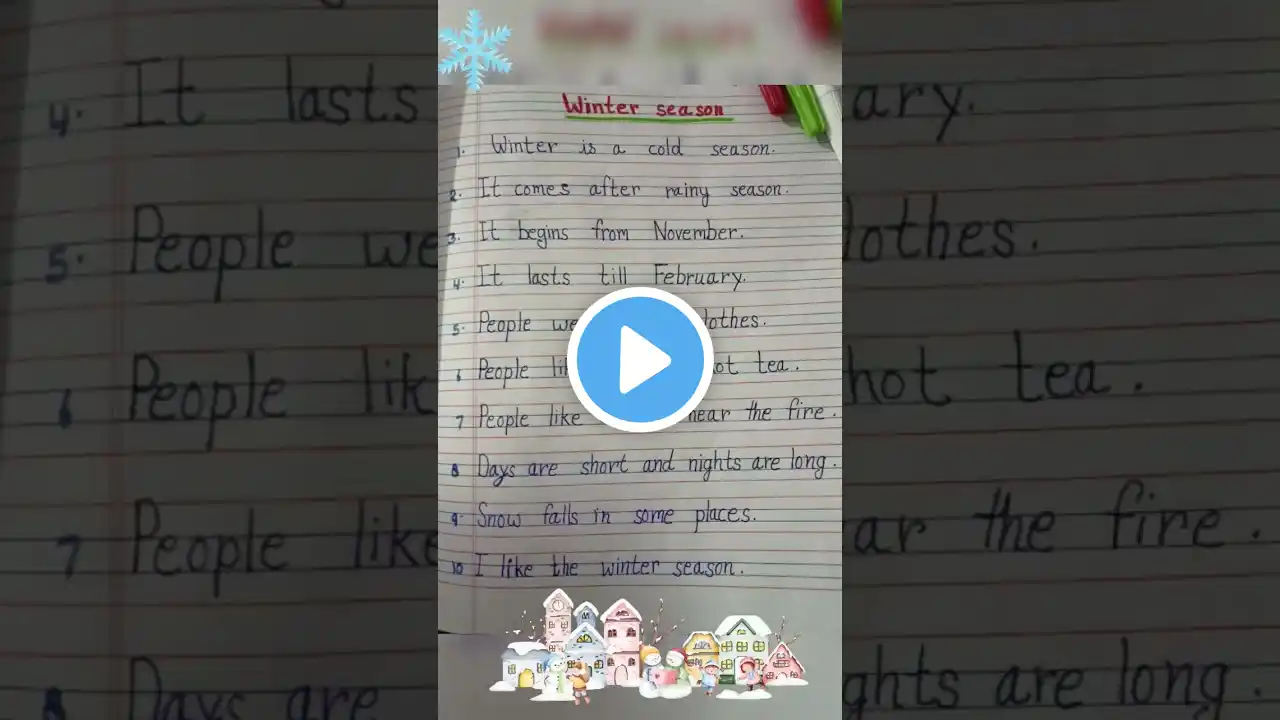 Winter season
1. Winter is a cold season.
2. It comes after rainy season.
3. It begins from November.
4. It lasts till February.
5. People we lothes.
6 People lik hot tea.
7 People like near the fire.
8 Days are short and nights are long.
9. Snow falls in some places.
10 I like the winter season.